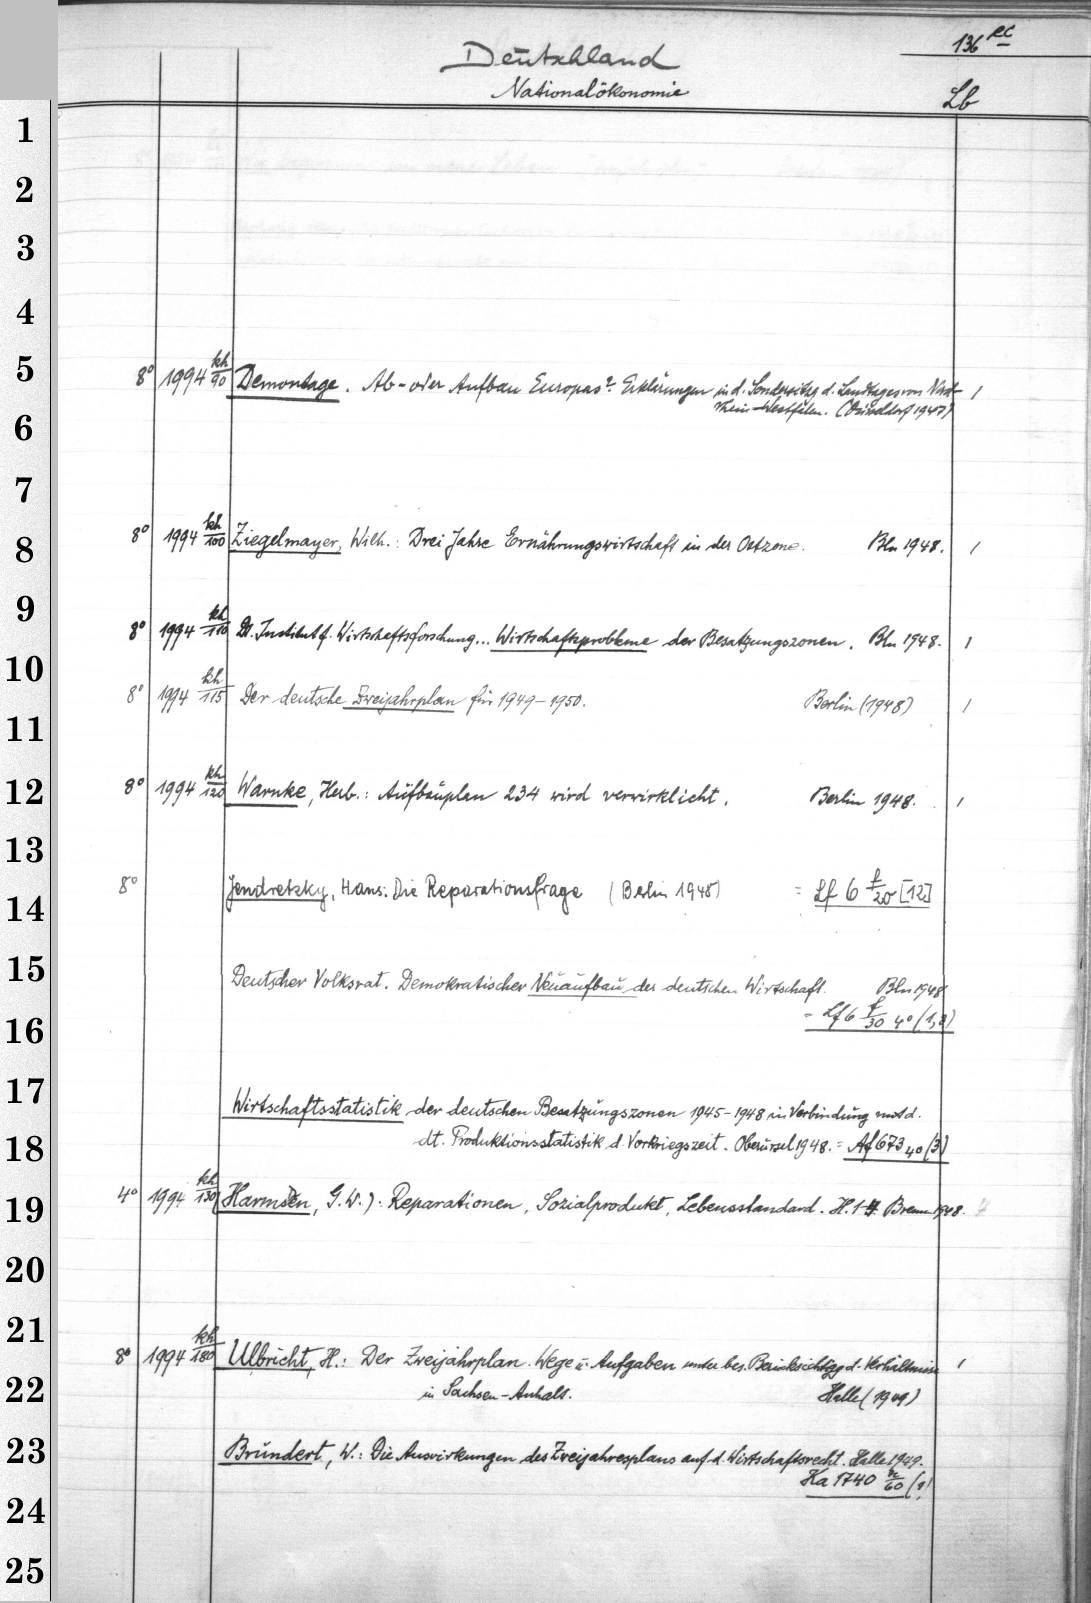 136 RC
Deutschland
Nationalökonomie
Lb
1
2
3
4
5
8° 1994 kh/90 Demontage. Ab- oder Aufbau Europas? Erklärungen in d. Sondersitzg d. Landtages von Nord- 1
rhein-Westfalen. (Düsseldorf 1947)
6
7
8
8° 1994 kh/100 Ziegelmayer, Wilh.: Drei Jahre Ernährungswirtschaft in der Ostzone. Bln 1948. 1
9
8° 1994 kh/110 Dt. Institut f. Wirtschaftsforschung... Wirtschaftsprobleme der Besatzungszonen. Bln 1948. 1
10
8° 1994 kh/115 Der deutsche Zweijahrplan für 1949-1950. Berlin (1948) 1
11
12
8° 1994 kh/120 Warnke, Herb.: Aufbauplan 234 wird verwirklicht. Berlin 1948. 1
13
14
8° Jendretzky, Hans: Die Reparationsfrage (Berlin 1948) = Lf 6 f/20 [12]
15
Deutscher Volksrat. Demokratischer Neuaufbau der deutschen Wirtschaft. Bln 1948
16
= Lf 6 f/30 4° (1,2)
17
Wirtschaftsstatistik der deutschen Besatzungszonen 1945-1948 in Verbindung mit d.
18
dt. Produktionsstatistik d. Vorkriegszeit. Oberursel 1948. = Af 673 4° (3)
19
4° 1994 kh/130 Harmsen, G. W.): Reparationen, Sozialprodukt, Lebensstandard. H. 1-4 Bremen 1948. 4
20
21
8° 1994 kh/180 Ulbricht, H.: Der Zweijahrplan. Wege u. Aufgaben unter bes. Berücksichtigg d. Verhältnisse 1
22
in Sachsen-Anhalt. Halle (1949)
23
Bründert, W.: Die Auswirkungen des Zweijahresplans auf d. Wirtschaftsrecht. Halle 1949.
Ha 1740 /60 (1)
24
25